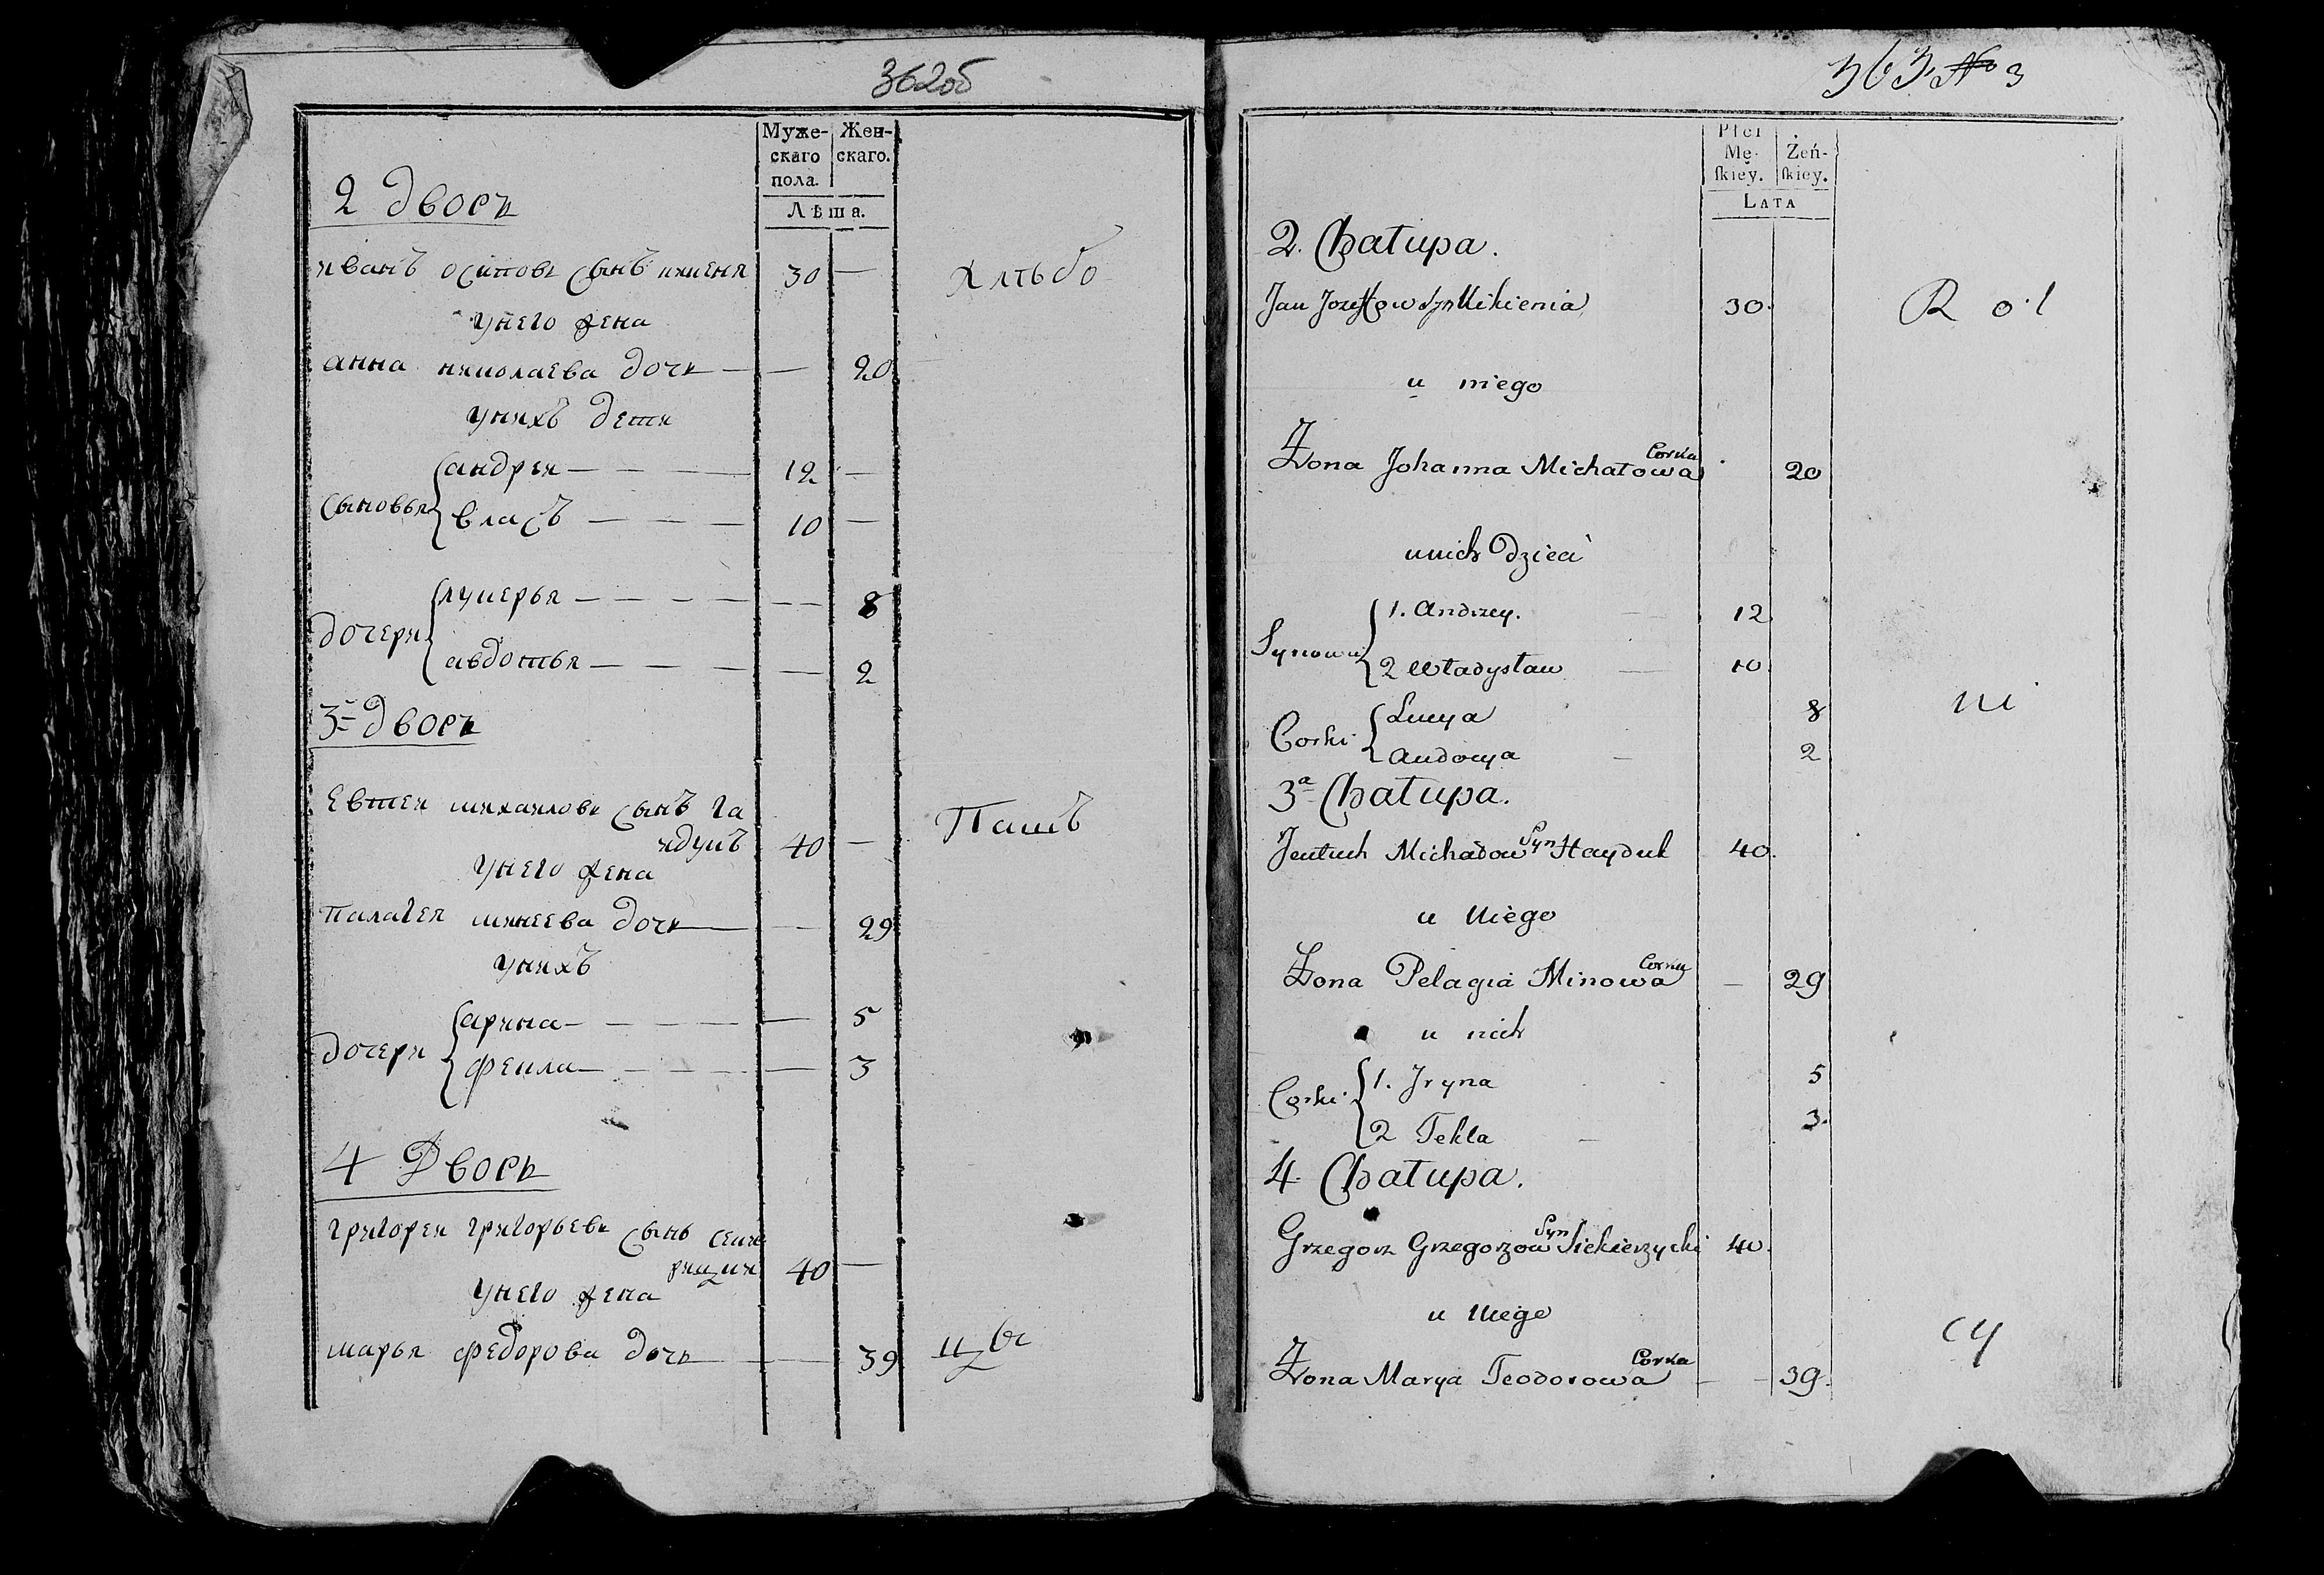 362об
Муже-
скаго
пола.
Жен-
скаго.
Лѣта.
2 Дворъ
иванъ осиповъ сынъ микеня 30 —
унего жена
анна николаева дочь — — 20
унихъ дети
сыновья
андреи — — — 12 —
власъ — — — 10 —
дочери
лукерья — — — — — 8
авдотья — — — — 2
3й Дворъ
Евтеи михаиловъ сынъ га
идукъ 40 —
унего жена
палагея минеева дочь — — 29
унихъ
дочери
арина — — — — — 5
фекла — — — — — 3
4 Дворъ
григореи григорьевъ сынъ секе
рицки 40 —
унего жена
марья федорова дочь — — 39
Хлѣбо
Паш
цы
363 № 3
Płci
Mę-
skiey.
Żeń-
skiey.
LATA
2. Chałupa.
Jan Jozefow Syn Mikienia 30.
u niego
Żona Johanna Michałowa Corka 20
u nich Dzieci
Synowie
1. Andrzey. 12
2 Władysław 10
Corki
Lucya 8
Audocya 2
3a Chałupa.
Jeutuch Michałow Syn Hayduk 40.
u Niego
Żona Pelagia Minowa Corka — 29
u nich
Corki
1. Jryna 5
2 Tekla 3.
4. Chałupa.
Grzegorz Grzegorzow Syn Siekierzycki 40.
u Niego
Żona Marya Teodorowa Corka — — 39.
R o l
ni
cy